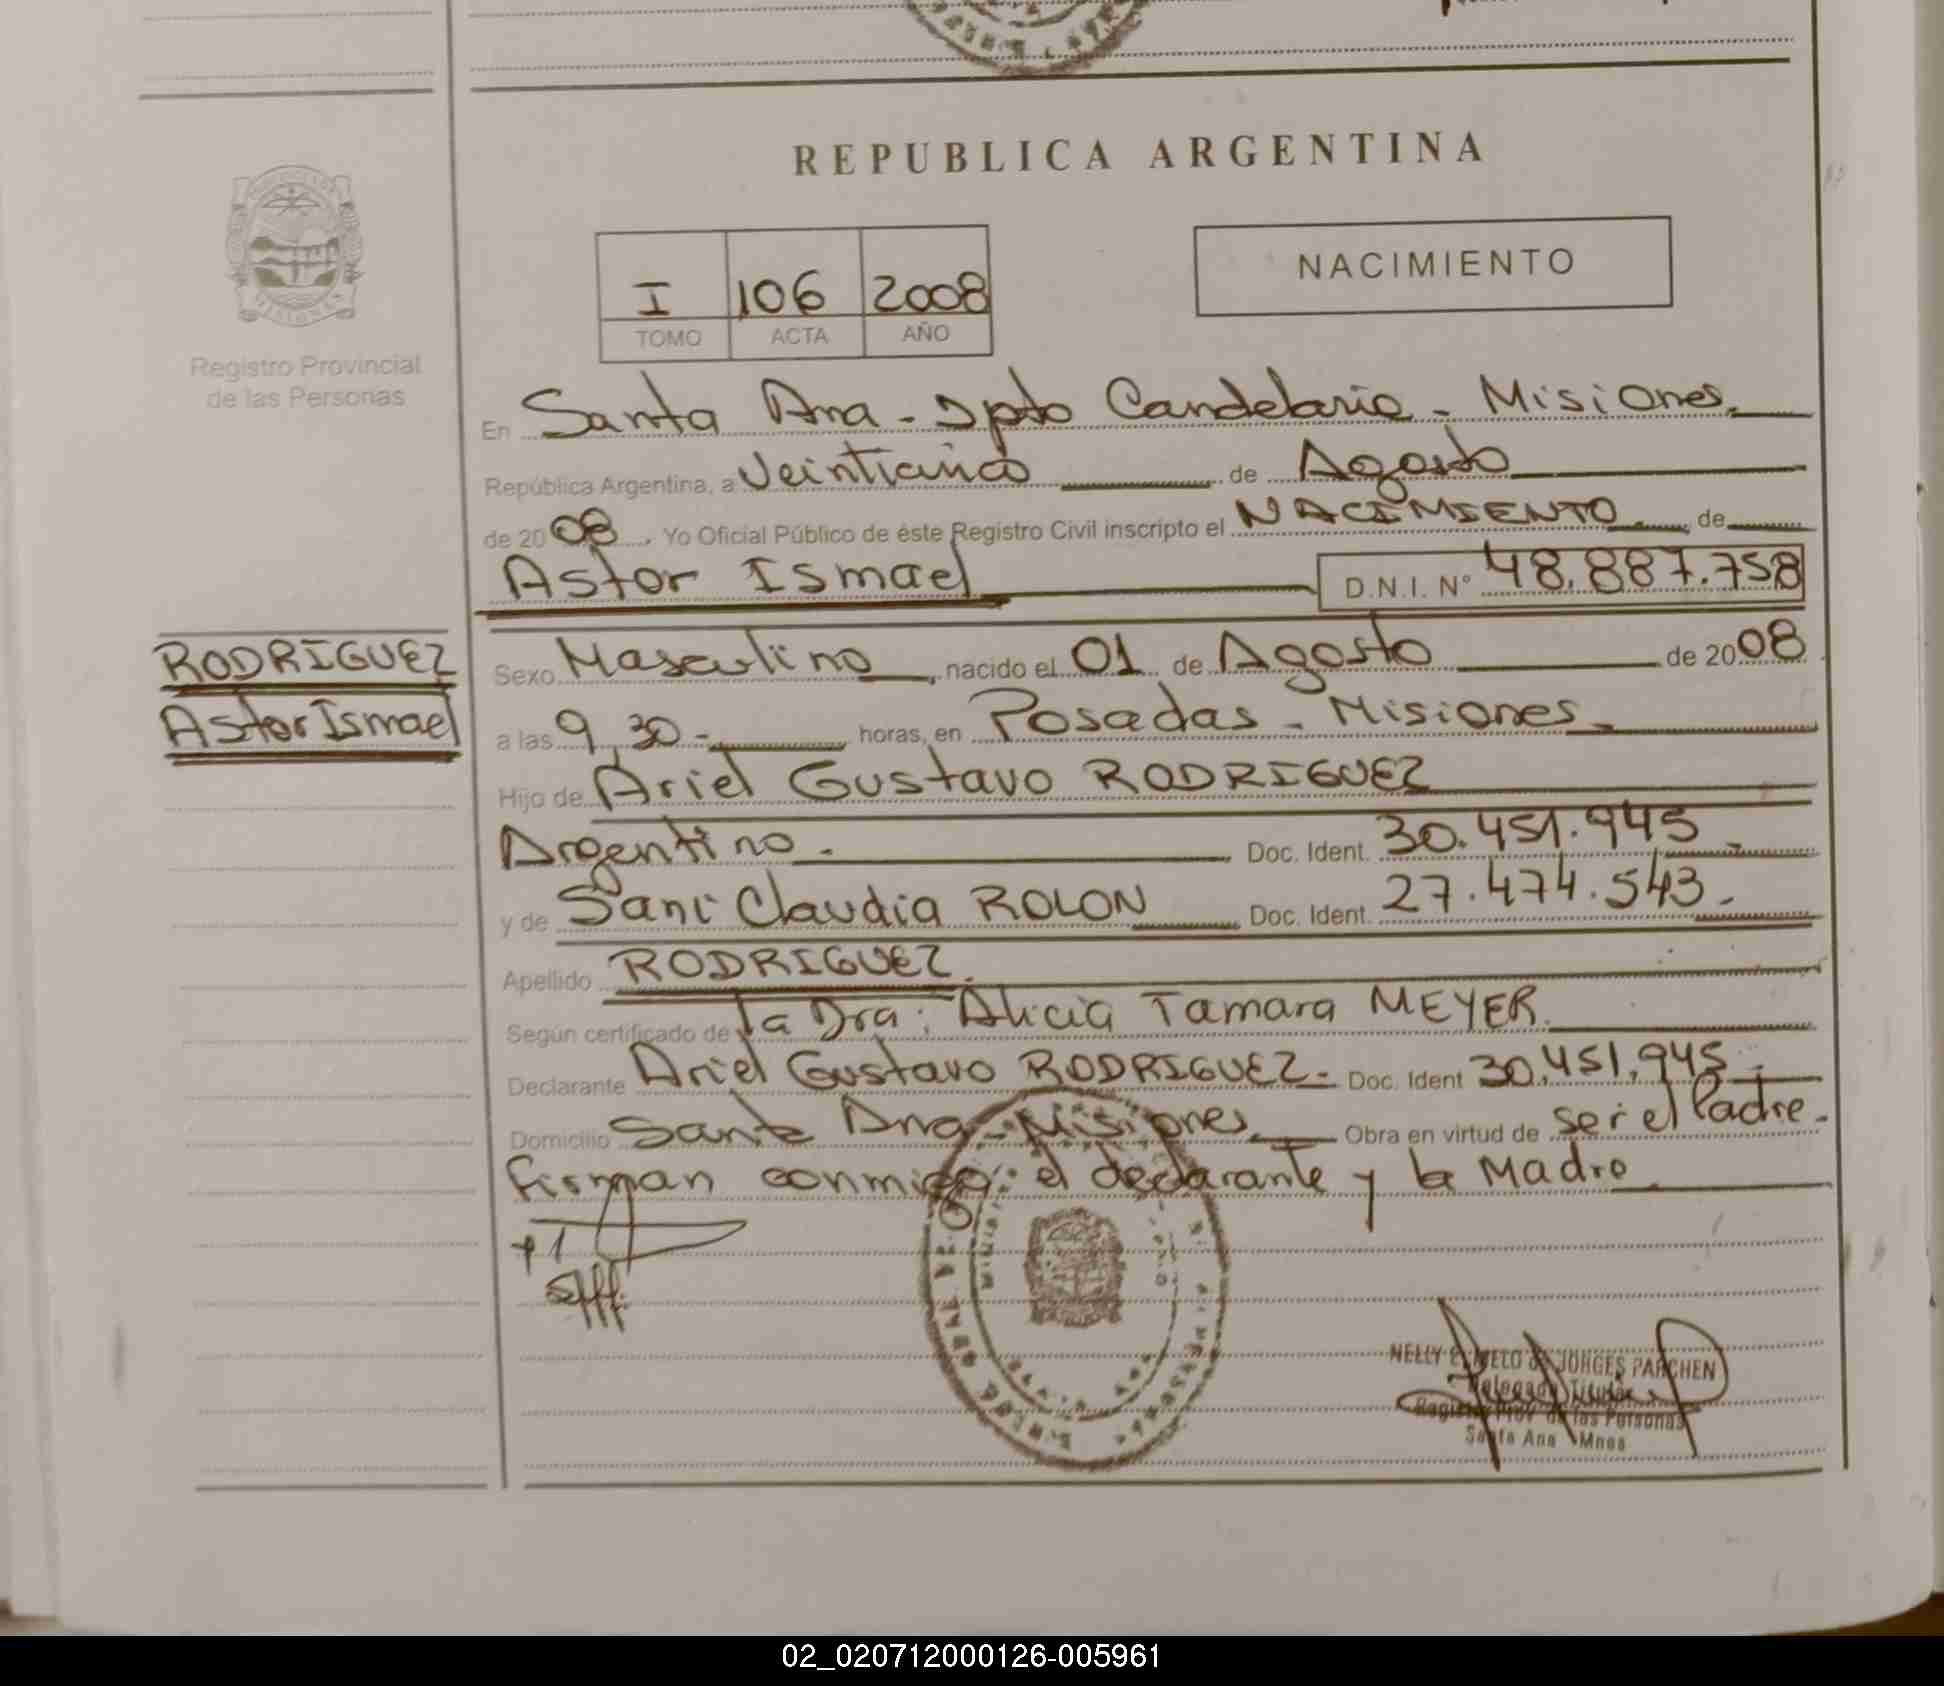 REPUBLICA ARGENTINA
NACIMIENTO
I 106 2008
TOMO ACTA AÑO
Registro Provincial
de las Personas
En Santa Ana - Dpto Candelaria - Misiones.
República Argentina, a Veinticinco de Agosto
de 2008. Yo Oficial Público de éste Registro Civil inscripto el NACIMIENTO de
Astor Ismael D.N.I. N° 48.887.758
RODRIGUEZ
Astor Ismael
Sexo Masculino, nacido el 01 de Agosto de 2008
a las 9,30 - horas, en Posadas - Misiones.
Hijo de Ariel Gustavo RODRIGUEZ
Argentino. Doc. Ident. 30.451.945
y de Sani Claudia ROLON Doc. Ident. 27.474.543.-
Apellido RODRIGUEZ.
Según certificado de la Dra: Alicia Tamara MEYER.
Declarante Ariel Gustavo RODRIGUEZ. Doc. Ident 30,451,945.-
Domicilio Santa Ana - Misiones. Obra en virtud de ser el Padre.
Firman conmigo el declarante y la Madre.
NELLY E. DE JORGES PARCHEN
Delegada Titular
Registro Prov. de las Personas
Santa Ana Mnes
02_020712000126-005961